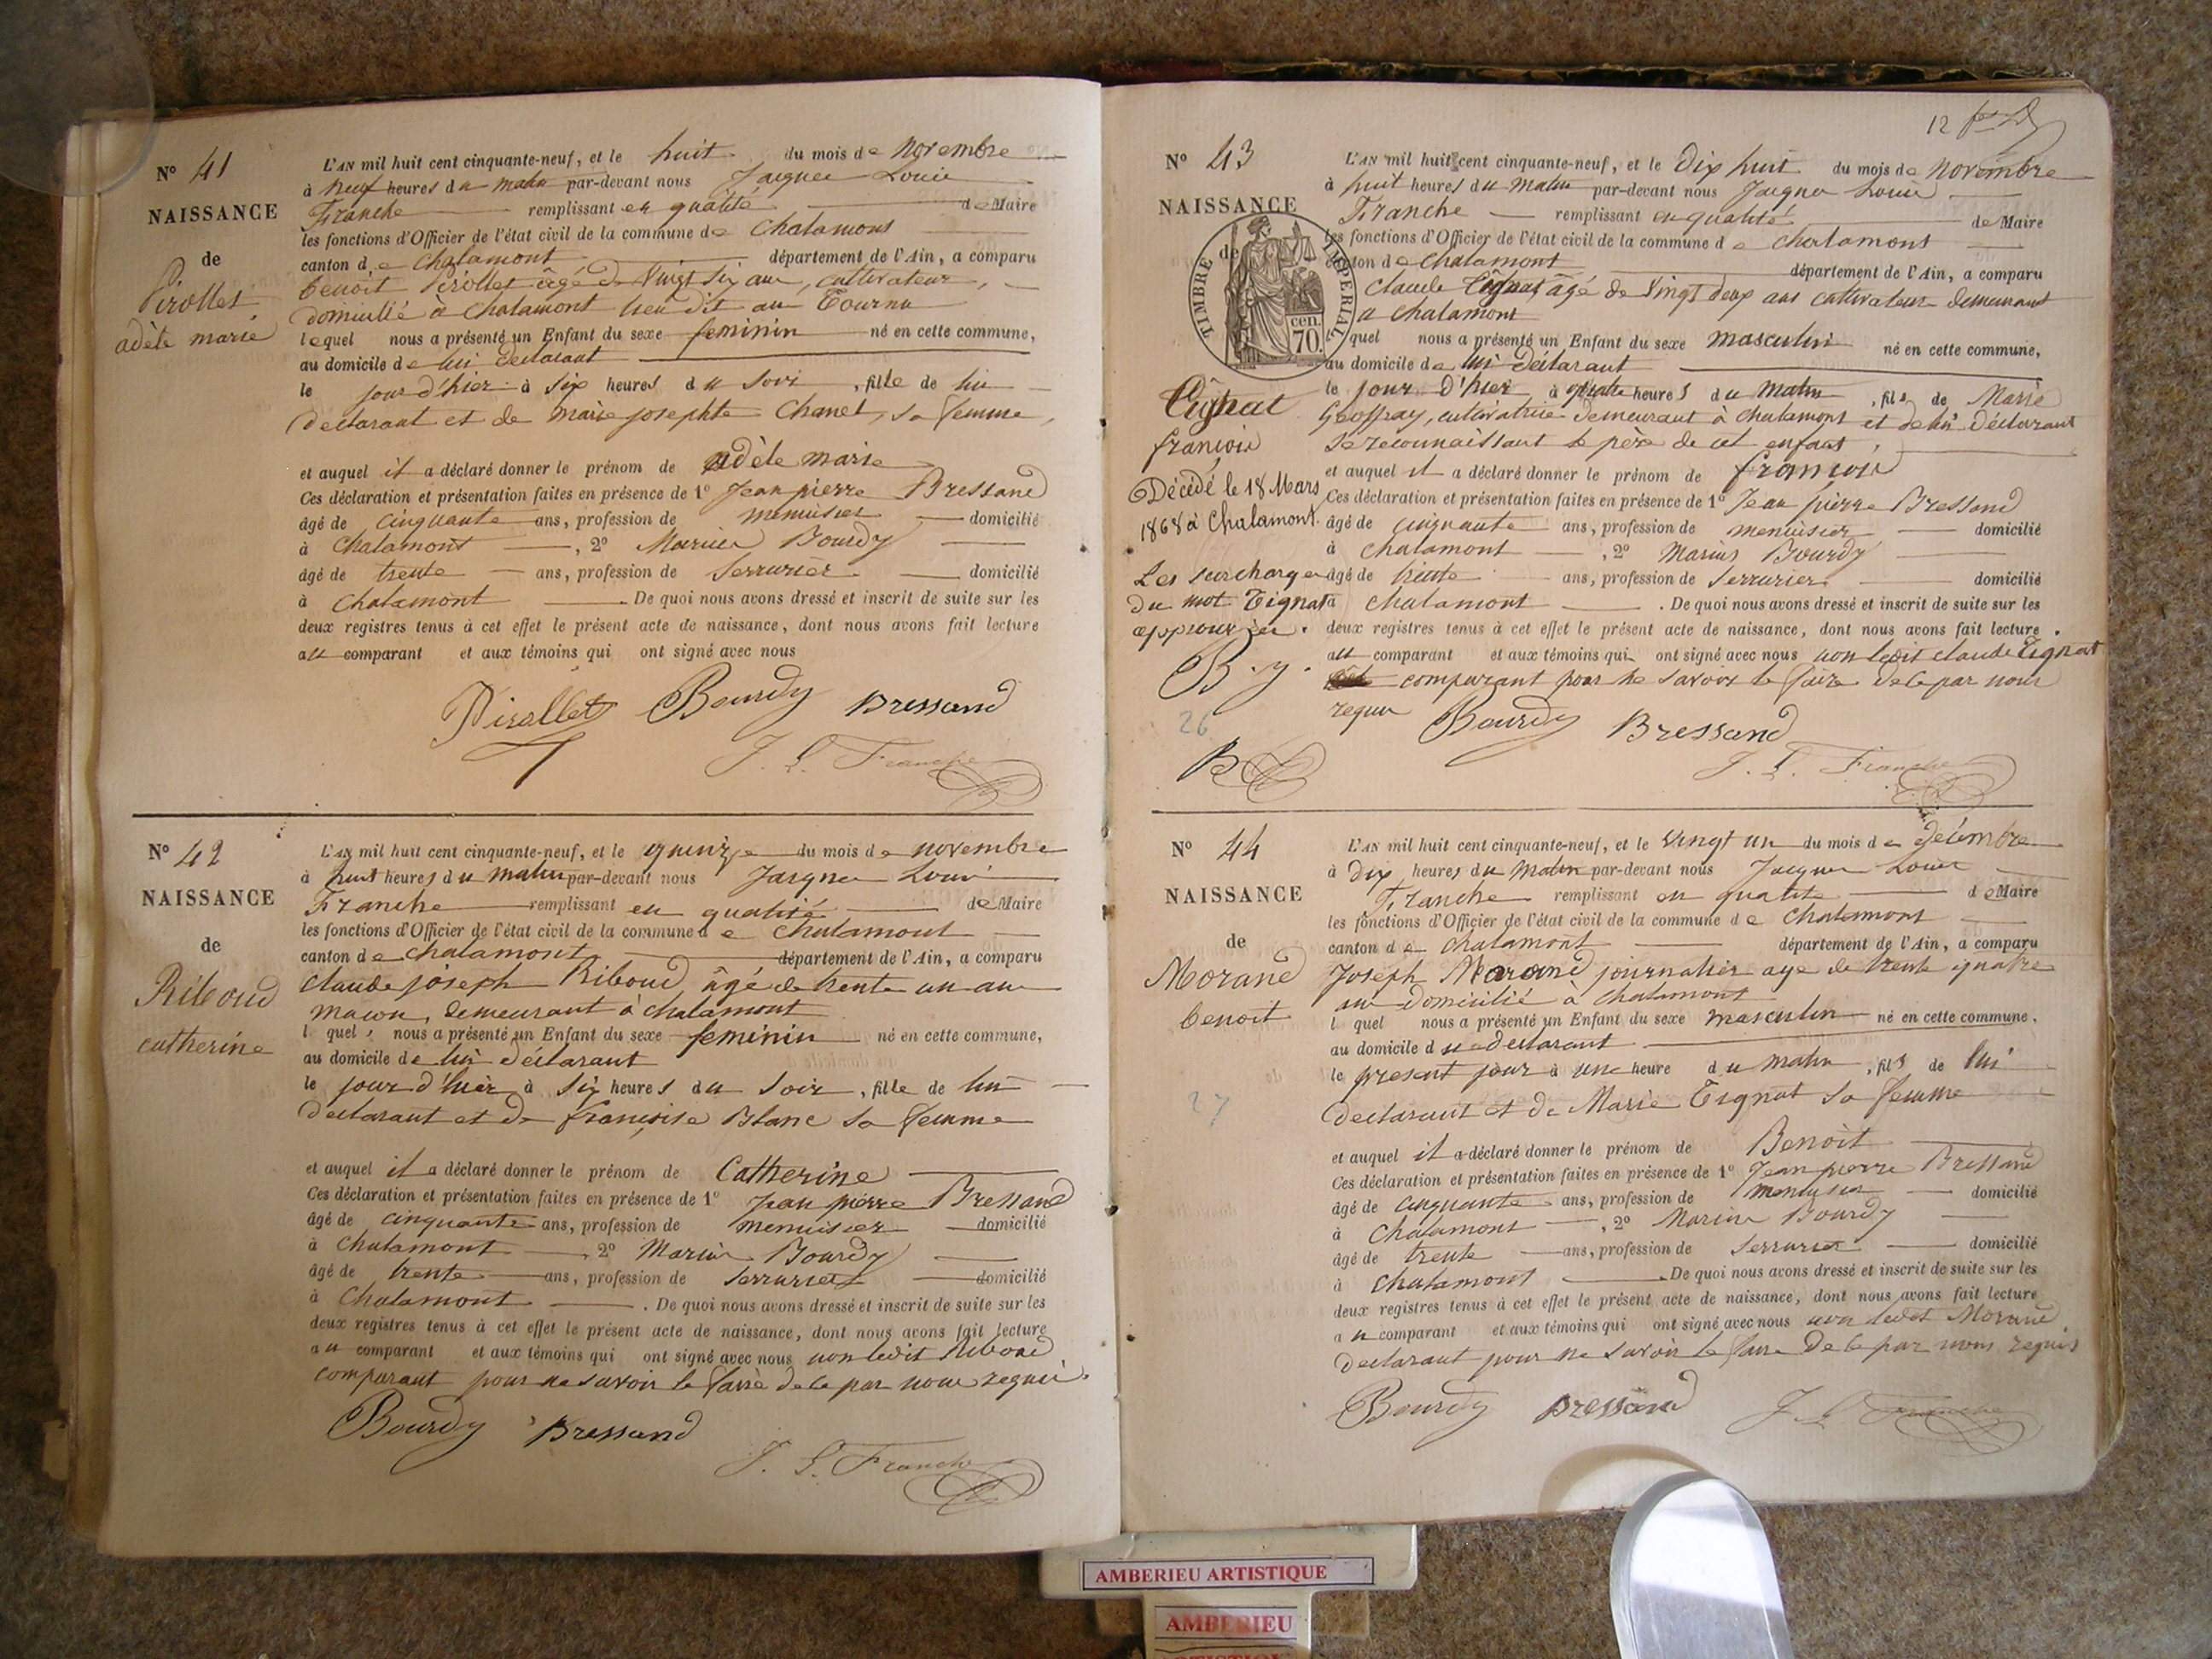 N° 41
NAISSANCE
de
Pirollet
adèle marie
L'AN mil huit cent cinquante-neuf, et le huit du mois de novembre
à neuf heures du matin par-devant nous Jacques Louis
Franche remplissant en qualité de Maire
les fonctions d'Officier de l'état civil de la commune de Chalamont
canton de Chalamont département de l'Ain, a comparu
benoit Pirollet âgé de vingt six ans, cultivateur,
domicilié à Chalamont lieu dit au Tournu
lequel nous a présenté un Enfant du sexe feminin né en cette commune,
au domicile de lui déclarant
le jour d'hier à six heures du soir, fille de lui
declarant et de marie josephte Chanel, sa femme,
et auquel il a déclaré donner le prénom de adèle marie
Ces déclaration et présentation faites en présence de 1° Jean pierre Bressand
âgé de cinquante ans, profession de menuisier domicilié
à Chalamont, 2° Marius Bourdy
âgé de trente ans, profession de serrurier domicilié
à Chalamont. De quoi nous avons dressé et inscrit de suite sur les
deux registres tenus à cet effet le présent acte de naissance, dont nous avons fait lecture
au comparant et aux témoins qui ont signé avec nous
Pirollet Bourdy Bressand
J. L. Franche
N° 42
NAISSANCE
de
Riboud
catherine
L'AN mil huit cent cinquante-neuf, et le quinze du mois de novembre
à huit heures du matin par-devant nous Jacques Louis
Franche remplissant en qualité de Maire
les fonctions d'Officier de l'état civil de la commune de Chalamont
canton de Chalamont département de l'Ain, a comparu
claude joseph Riboud âgé de trente un ans
maçon, demeurant à chalamont
l quel nous a présenté un Enfant du sexe feminin né en cette commune,
au domicile de lui déclarant
le jour d'hier à six heures du soir, fille de lui
declarant et de françoise Blanc sa femme
et auquel il a déclaré donner le prénom de Catherine
Ces déclaration et présentation faites en présence de 1° Jean pierre Bressand
âgé de cinquante ans, profession de menuisier domicilié
à Chalamont, 2° Marius Bourdy
âgé de trente ans, profession de serrurier domicilié
à Chalamont. De quoi nous avons dressé et inscrit de suite sur les
deux registres tenus à cet effet le présent acte de naissance, dont nous avons fait lecture
au comparant et aux témoins qui ont signé avec nous non ledit Riboud
comparant pour ne savoir le faire de ce par nous requis.
Bourdy Bressand
J. L. Franche
12
N° 43
NAISSANCE
de
TIMBRE IMPERIAL
70 cen.
Tignat
françois
Décédé le 18 Mars
1868 à Chalamont.
Les surcharges
du mot Tignat
approuvées.
B. y.
26
L'AN mil huit cent cinquante-neuf, et le dix huit du mois de novembre
à huit heures du matin par-devant nous Jacques Louis
Franche remplissant en qualité de Maire
les fonctions d'Officier de l'état civil de la commune de chalamont
canton de chalamont département de l'Ain, a comparu
claude Tignat âgé de vingt deux ans cultivateur demeurant
a chalamont
quel nous a présenté un Enfant du sexe masculin né en cette commune,
au domicile de lui déclarant
le jour d'hier à quatre heures du matin, fils de Marie
Geoffray, cultivatrice demeurant à chalamont et de lui déclarant
se reconnaissant le père de cet enfant,
et auquel il a déclaré donner le prénom de françois
Ces déclaration et présentation faites en présence de 1° Jean pierre Bressand
âgé de cinquante ans, profession de menuisier domicilié
à chalamont, 2° Marius Bourdy
âgé de trente ans, profession de serrurier domicilié
à chalamont. De quoi nous avons dressé et inscrit de suite sur les
deux registres tenus à cet effet le présent acte de naissance, dont nous avons fait lecture
au comparant et aux témoins qui ont signé avec nous non ledit claude Tignat
comparant pour ne savoir le faire de ce par nous
requis Bourdy Bressand
J. L. Franche
N° 44
NAISSANCE
de
Morand
benoit
27
L'AN mil huit cent cinquante-neuf, et le vingt un du mois de décembre
à dix heures du matin par-devant nous Jacques Louis
Franche remplissant en qualité de Maire
les fonctions d'Officier de l'état civil de la commune de Chalamont
canton de chalamont département de l'Ain, a comparu
Joseph Morand journalier age de trente quatre
ans domicilié à chalamont
l quel nous a présenté un Enfant du sexe masculin né en cette commune,
au domicile du declarant
le present jour à une heure du matin, fils de lui
declarant et de Marie Tignat sa femme
et auquel il a déclaré donner le prénom de Benoit
Ces déclaration et présentation faites en présence de 1° Jean pierre Bressand
âgé de cinquante ans, profession de menuisier domicilié
à Chalamont, 2° Marius Bourdy
âgé de trente ans, profession de serrurier domicilié
à Chalamont. De quoi nous avons dressé et inscrit de suite sur les
deux registres tenus à cet effet le présent acte de naissance, dont nous avons fait lecture
au comparant et aux témoins qui ont signé avec nous non ledit Morand
declarant pour ne savoir le faire de ce par nous requis
Bourdy Bressand J. L. Franche
AMBERIEU ARTISTIQUE
AMBERIEU
ARTISTIQUE